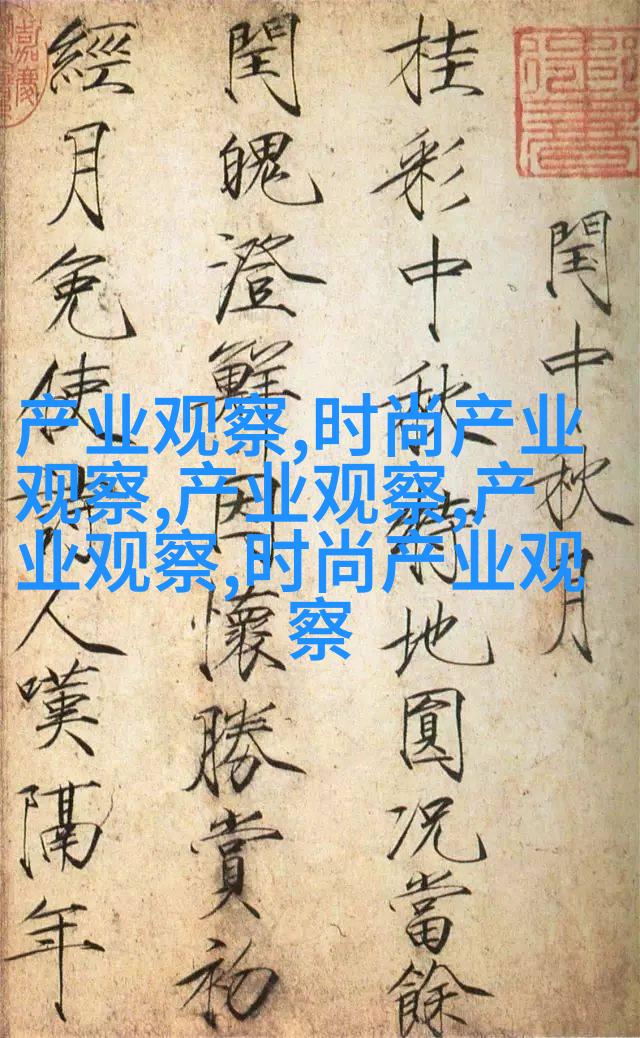 閏中秋月
桂彩中秋特地圓况當餘
閏魄澄鮮因懷勝賞初
經月免使詩人嘆隔年
嘉慶
产业观察,时尚产业
观察,产业观察,产
业观察,时尚产业观
察